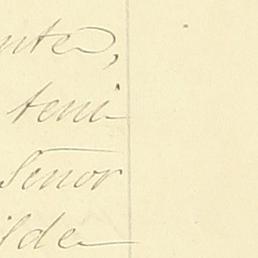 nte,
teni
Señor
ilde